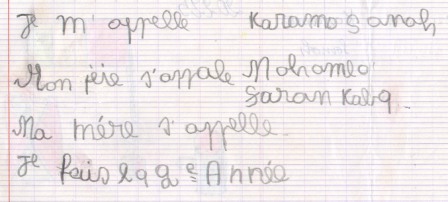 Je m'appelle Karamo Sanoh
Mon père s'appale Mohamed
Saran Kaba
Ma mére s'appelle
Je fais la 2e Année